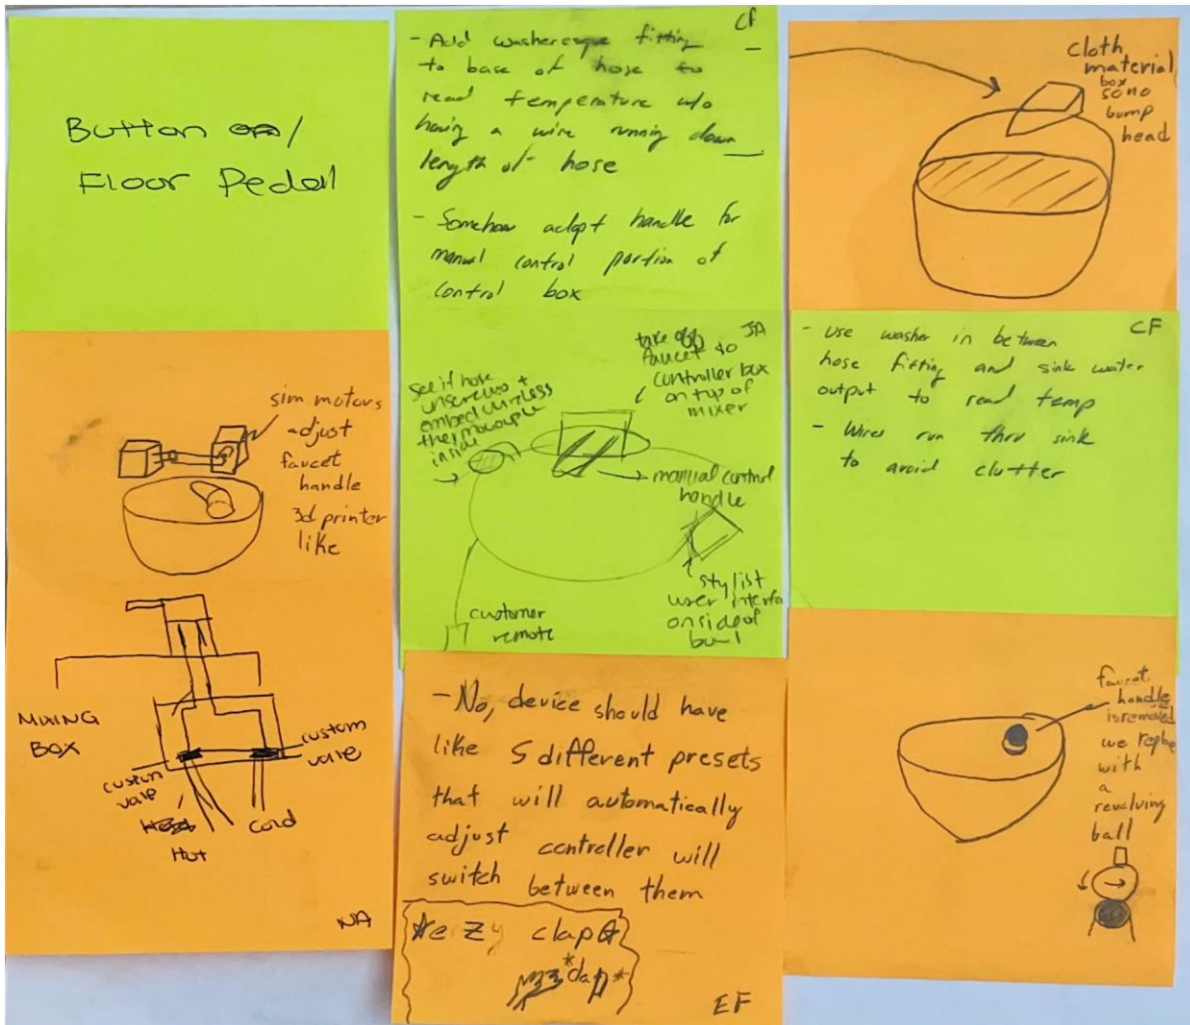 Button on/
Floor Pedal
sim motors
adjust
faucet
handle
3d printer
like
MIXING
BOX
custom
valve
custom
valve
Hot
Cold
NA
CF
- Add washeresque fitting
to base of hose to
read temperature w/o
having a wire running down
length of hose
- Somehow adapt handle for
manual control portion of
control box
JA
take off
faucet so
controller box
on top of
mixer
see if hose
unscrews +
embed wireless
thermocouple
inside
manual control
handle
stylist
user interfa
on side of
bowl
customer
remote
- No, device should have
like 5 different presets
that will automatically
adjust controller will
switch between them
ezy clap
*clap*
EF
cloth
material
box
so no
bump
head
CF
- Use washer in between
hose fitting and sink water
output to read temp
- Wires run thru sink
to avoid clutter
faucet
handle
is removed
we replace
with
a
revolving
ball